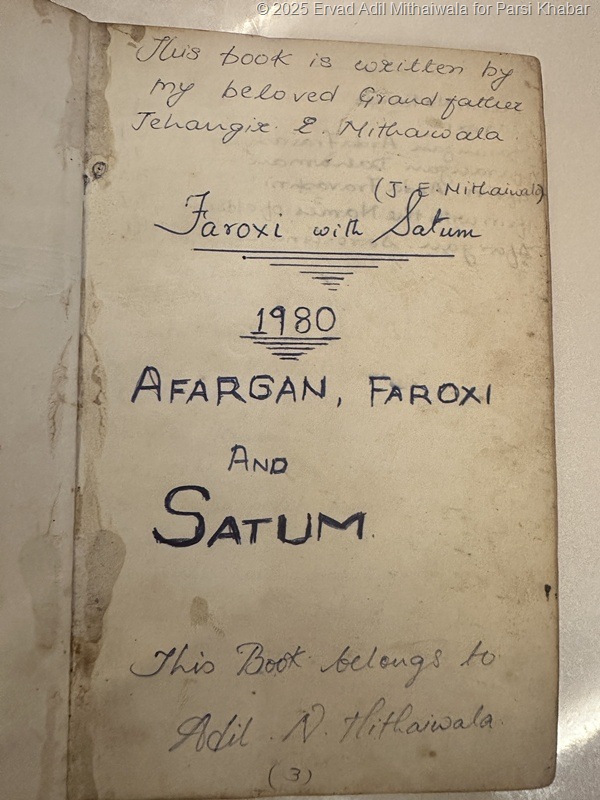 © 2025 Ervad Adil Mithaiwala for Parsi Khabar
This book is written by
my beloved Grand father
Jehangir E. Mithaiwala
(J. E. Mithaiwala)
Faroxi with Satum
1980
AFARGAN, FAROXI
AND
SATUM.
This Book belongs to
Adil . N. Mithaiwala.
(3)